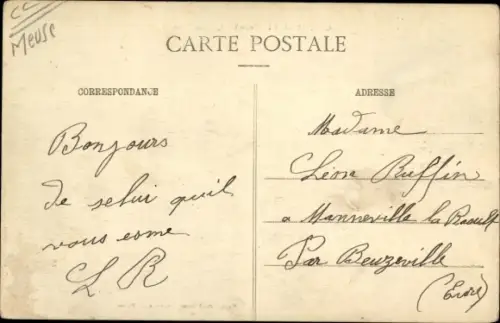 CC
Meuse
CARTE POSTALE
CORRESPONDANCE
Bonjours
de selui quil
vous eome
L R
ADRESSE
Madame
Léon Ruffin
a Manneville la Raoult
Par Beuzeville
(Eure)